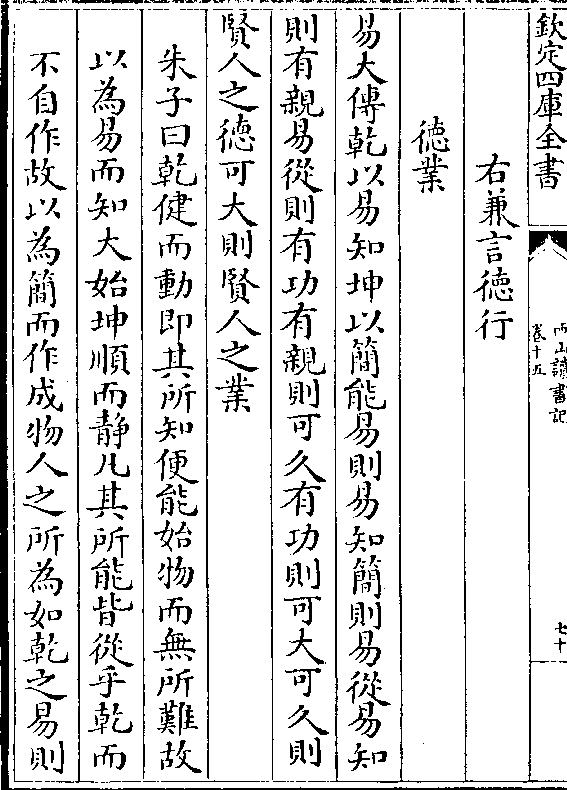 欽定四庫全書
西山讀書記
卷十五
七十
右兼言德行
德業
易大傳乾以易知坤以簡能易則易知簡則易從易知
則有親易從則有功有親則可久有功則可大可久則
賢人之德可大則賢人之業
朱子曰乾健而動即其所知便能始物而無所難故
以為易而知大始坤順而静凡其所能皆從乎乾而
不自作故以為簡而作成物人之所為如乾之易則